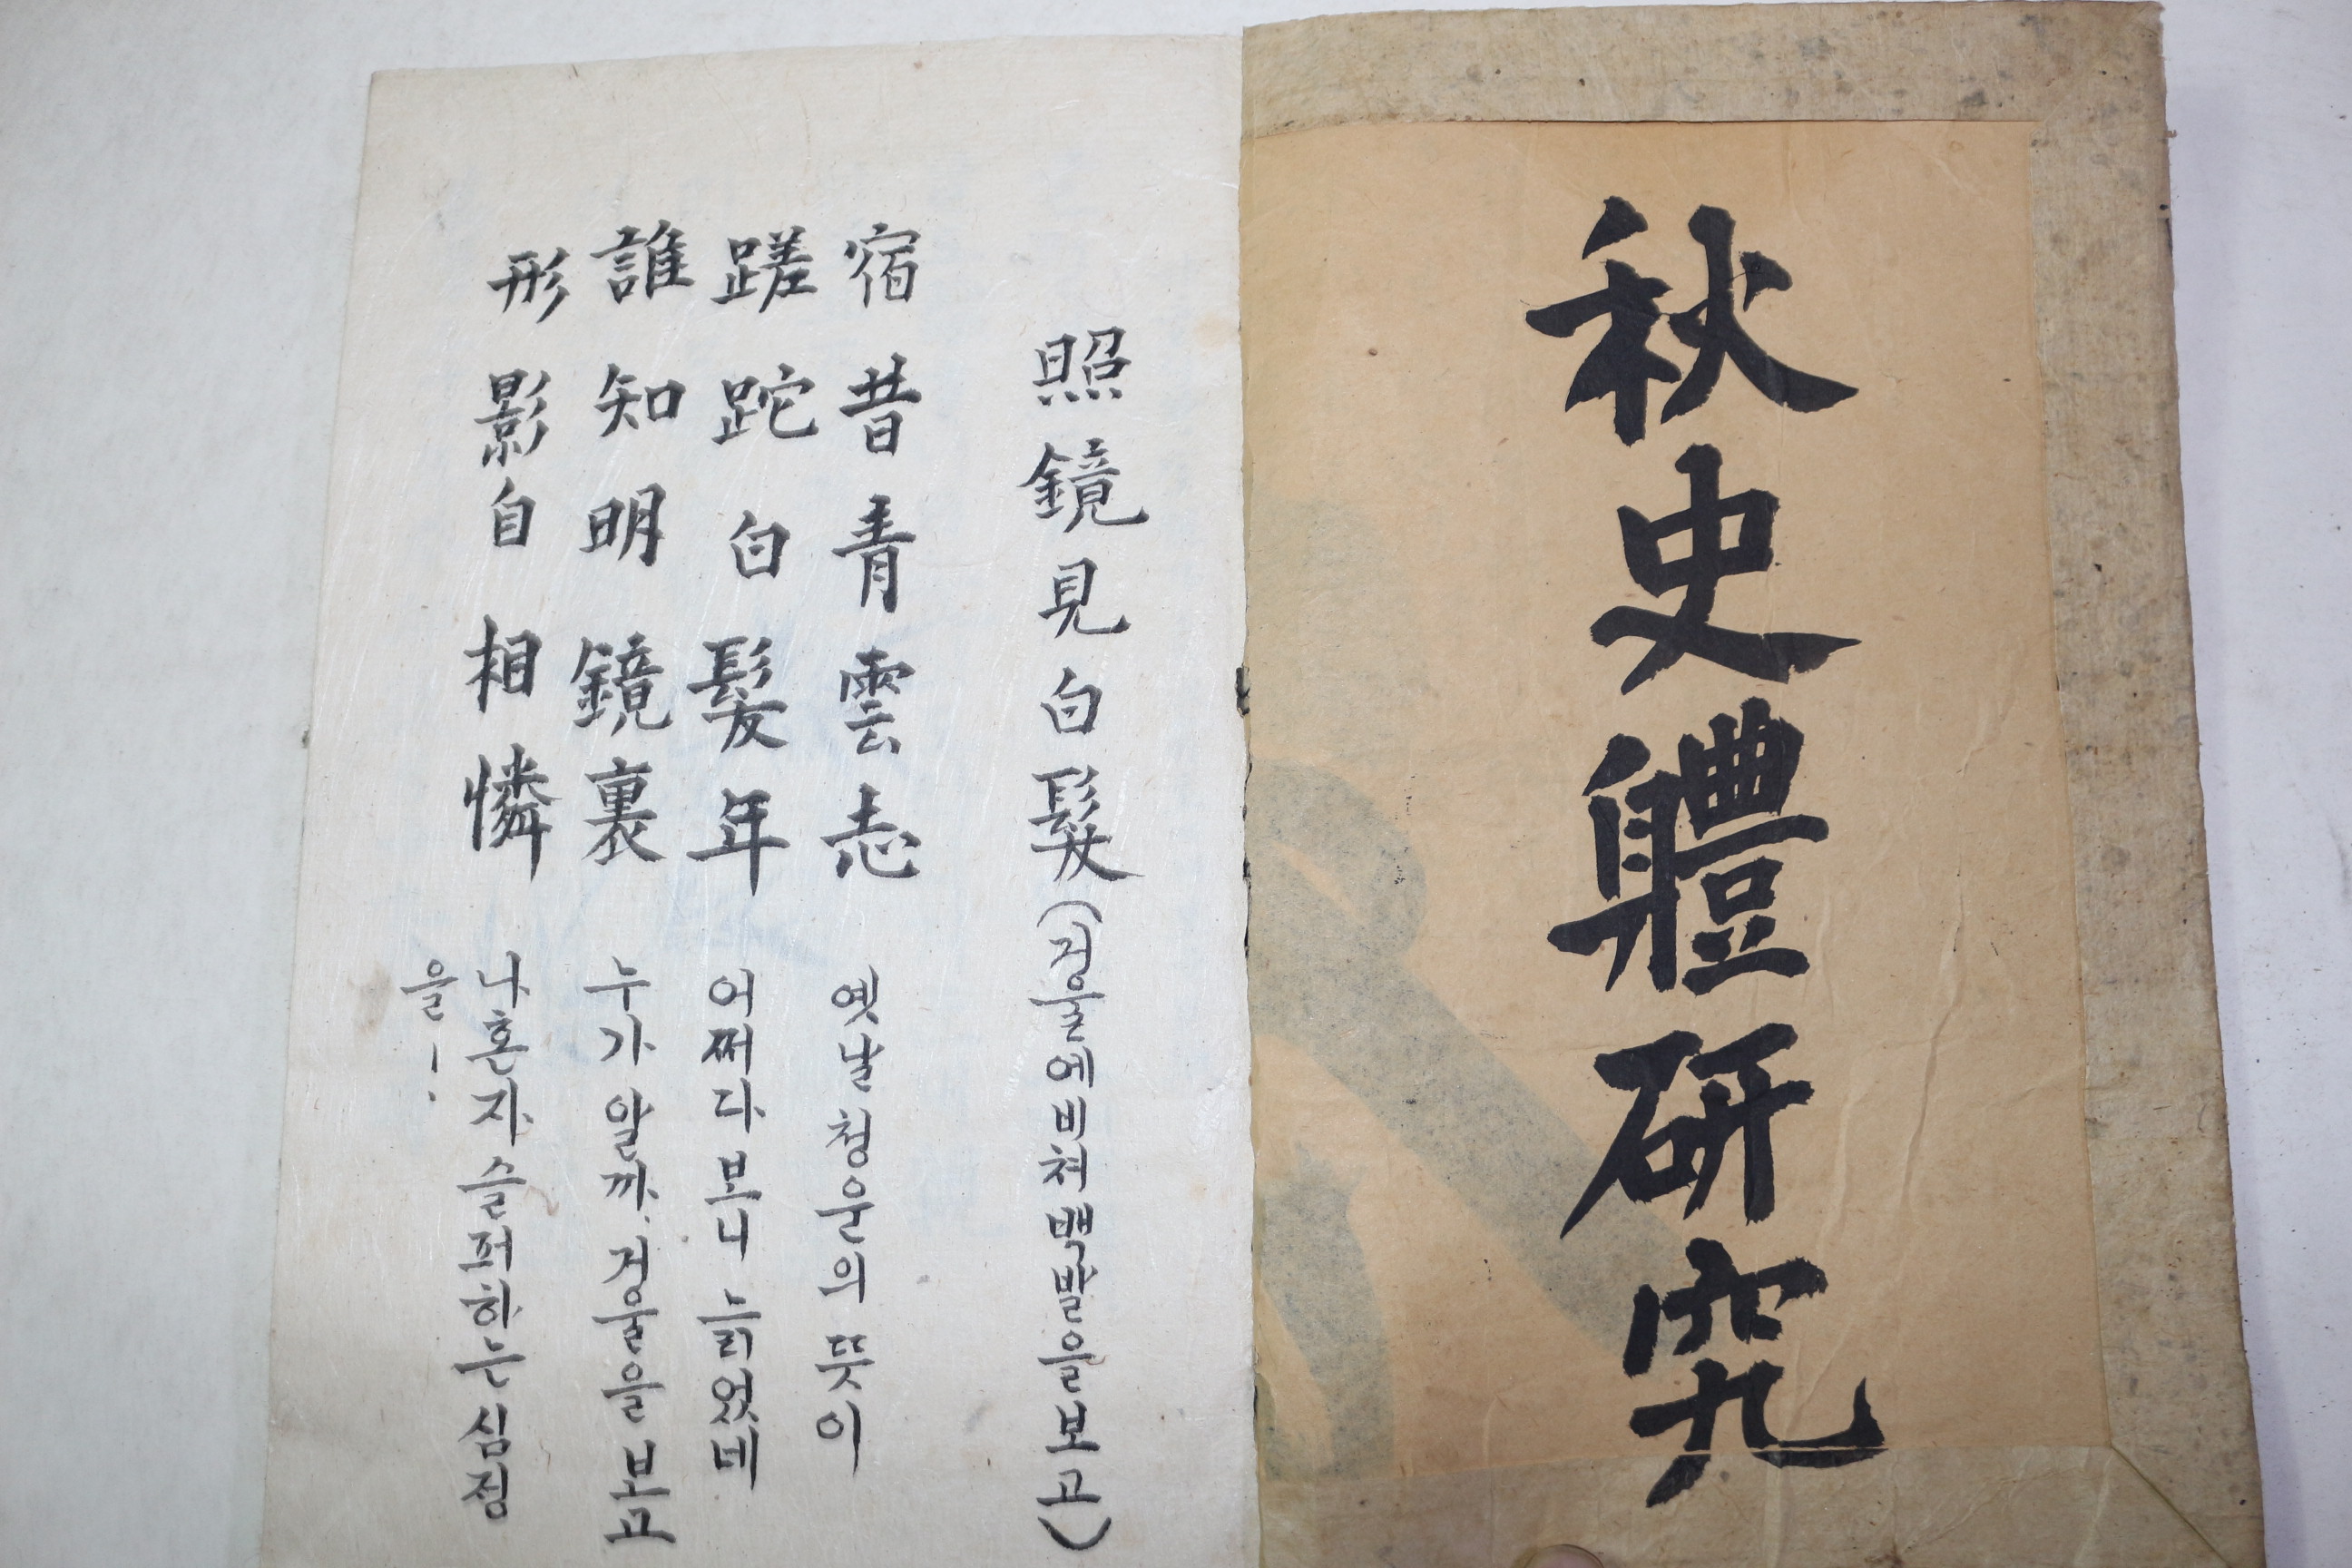 秋史軆研究
照鏡見白髮(겅울에비쳐백발을보고)
宿昔青雲志 옛날청운의뜻이
蹉跎白髮年 어쩌다보니늙었네
誰知明鏡裏 누가알까.겅울을보고
形影自相憐 나혼자슬퍼하는심정
을...